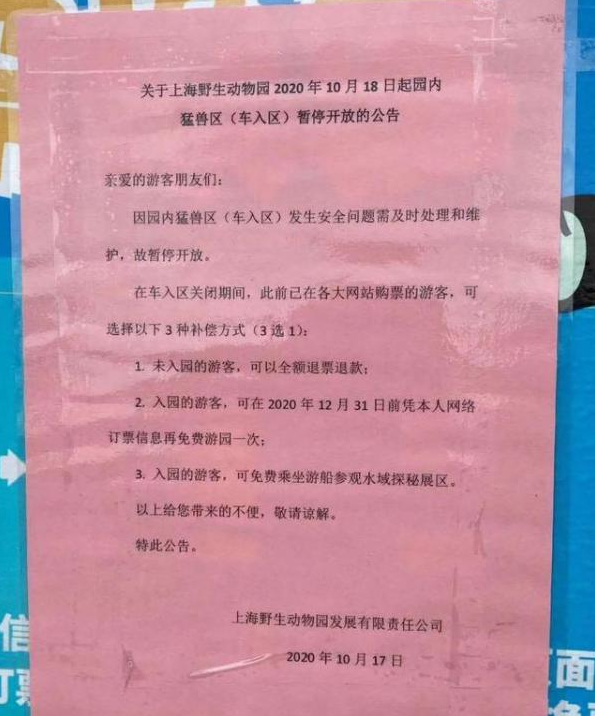 关于上海野生动物园 2020 年 10 月 18 日起园内
猛兽区（车入区）暂停开放的公告
亲爱的游客朋友们：
因园内猛兽区（车入区）发生安全问题需及时处理和维
护，故暂停开放。
在车入区关闭期间，此前已在各大网站购票的游客，可
选择以下 3 种补偿方式（3 选 1）：
1. 未入园的游客，可以全额退票退款；
2. 入园的游客，可在 2020 年 12 月 31 日前凭本人网络
订票信息再免费游园一次；
3. 入园的游客，可免费乘坐游船参观水域探秘展区。
以上给您带来的不便，敬请谅解。
特此公告。
上海野生动物园发展有限责任公司
2020 年 10 月 17 日
信
订票
面